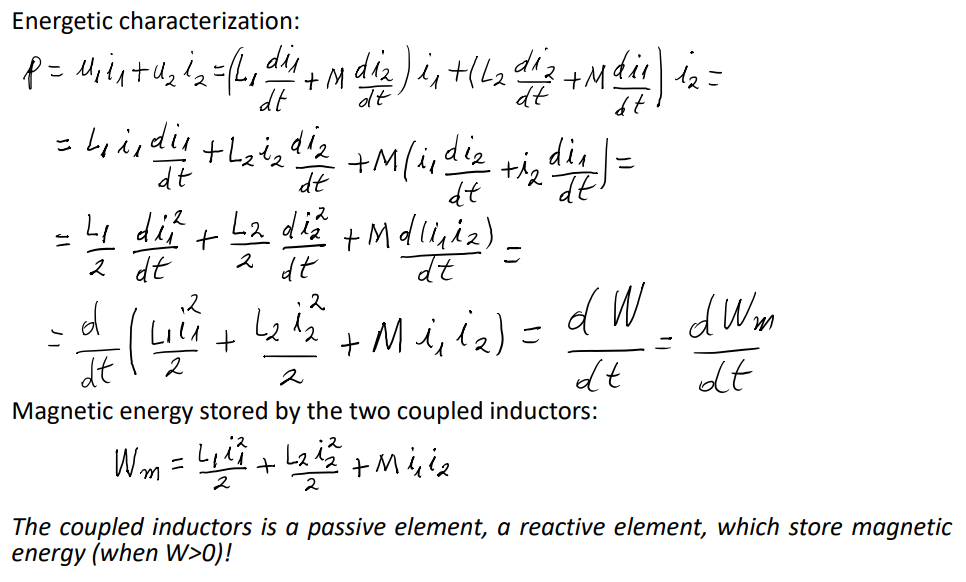 Energetic characterization:
p = u₁i₁+u₂i₂ = (L₁ di₁/dt + M di₂/dt) i₁ + (L₂ di₂/dt + M di₁/dt) i₂ =
= L₁i₁ di₁/dt + L₂i₂ di₂/dt + M(i₁ di₂/dt + i₂ di₁/dt) =
= L₁/2 di₁²/dt + L₂/2 di₂²/dt + M d(i₁i₂)/dt =
= d/dt (L₁i₁²/2 + L₂i₂²/2 + M i₁i₂) = dW/dt = dWₘ/dt
Magnetic energy stored by the two coupled inductors:
Wₘ = L₁i₁²/2 + L₂i₂²/2 + M i₁i₂
The coupled inductors is a passive element, a reactive element, which store magnetic
energy (when W>0)!